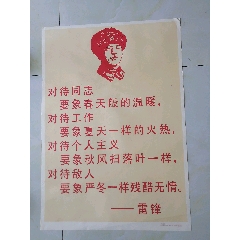 对待同志
要象春天般的温暖,
对待工作
要象夏天一样的火热,
对待个人主义
要象秋风扫落叶一样,
对待敌人
要象严冬一样残酷无情。
——雷锋